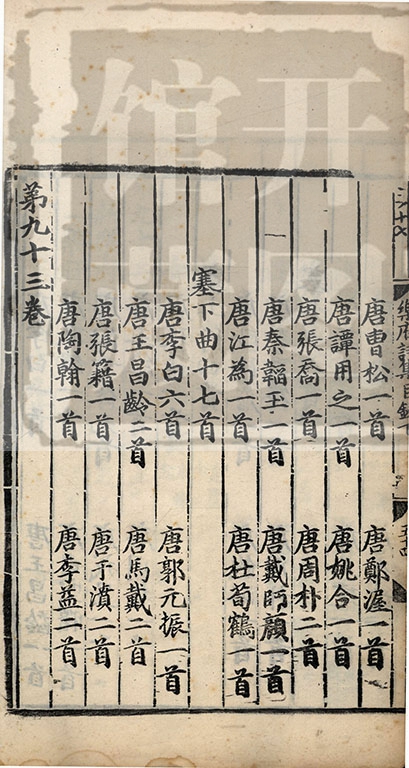 樂府詩集目錄下
唐曹松一首 唐鄭渥一首
唐譚用之一首 唐姚合一首
唐張喬一首 唐周朴二首
唐秦韜玉一首 唐戴師顏一首
唐江為一首 唐杜荀鶴一首
塞下曲十七首
唐李白六首 唐郭元振一首
唐王昌齡二首 唐馬戴二首
唐張籍一首 唐于濆二首
唐陶翰一首 唐李益二首
第九十三卷